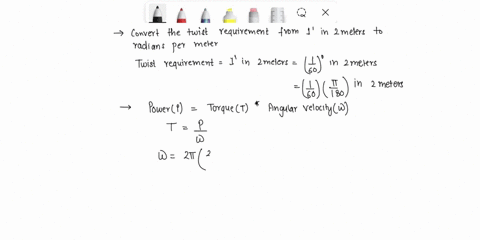 → Convert the twist requirement from 1' in 2 meters to
radians per meter
Twist requirement = 1' in 2 meters = (1/60)° in 2 meters
= (1/60) (π/180) in 2 meters
→ Power(P) = Torque(T) * Angular velocity(ω)
T = P/ω
ω = 2π(2